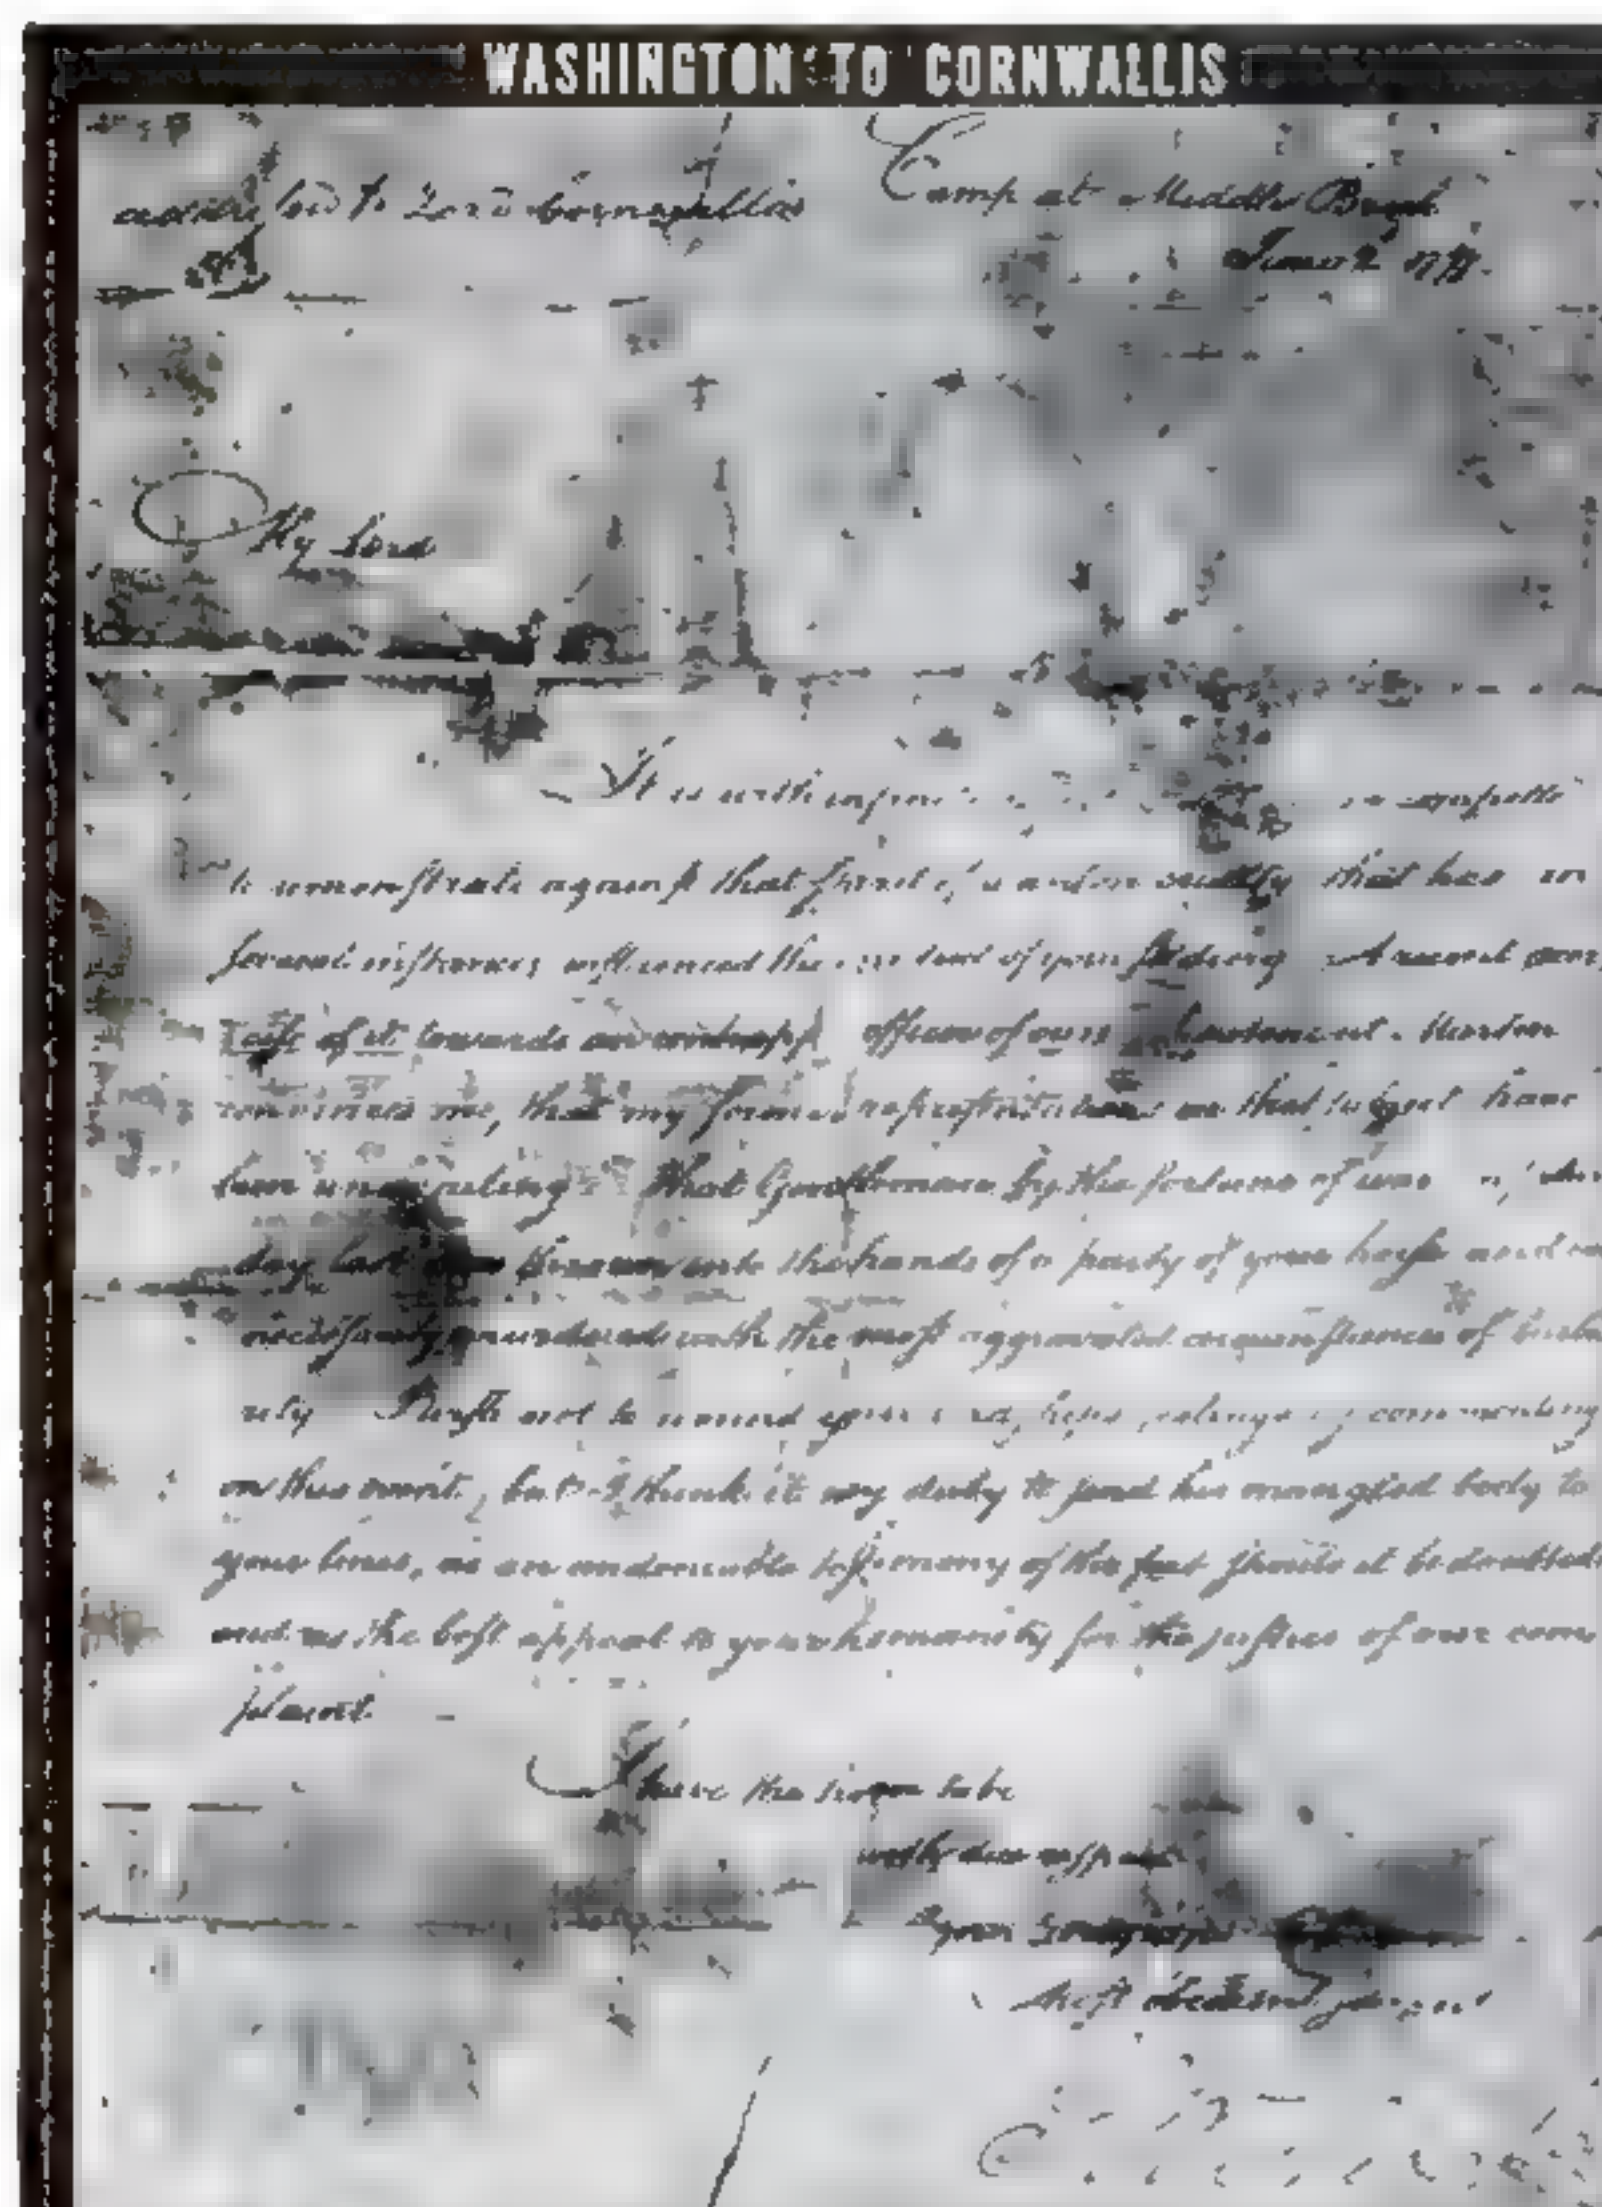 WASHINGTON TO CORNWALLIS
Camp at Middle Brook
addressed to Lord Cornwallis
June 2
My Lord
It is with
to remonstrate against that spirit of wanton cruelty that has in
several instances influenced the conduct of your soldiery A recent exer
cise of it towards an unhappy officer of ours Lieutenant Martin
convinces me, that my former representations on that subject have
been unavailing That Gentleman by the fortune of war
day last was thrown into the hands of a party of your horse and
necessarily murdered with the most aggravated circumstances of barba
rity I wish not to wound your feelings by commenting
on this event, but I think it my duty to send his mangled body to
your lines, as an undeniable testimony of the fact should it be doubted
and as the best appeal to your humanity for the justice of our com
plaint
I have the honor to be
with due respect
your
Most obedient servant